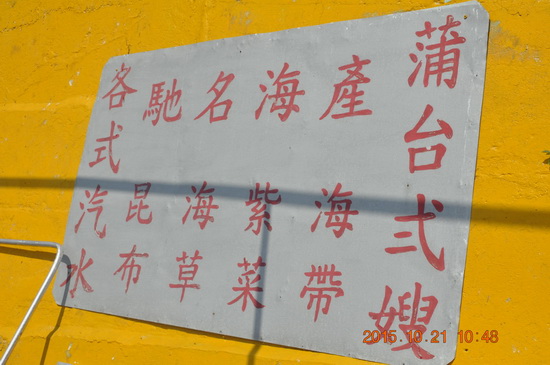 蒲台弍嫂
馳名海產
海帶
紫菜
海草
昆布
各式汽水
2015.10.21 10:48